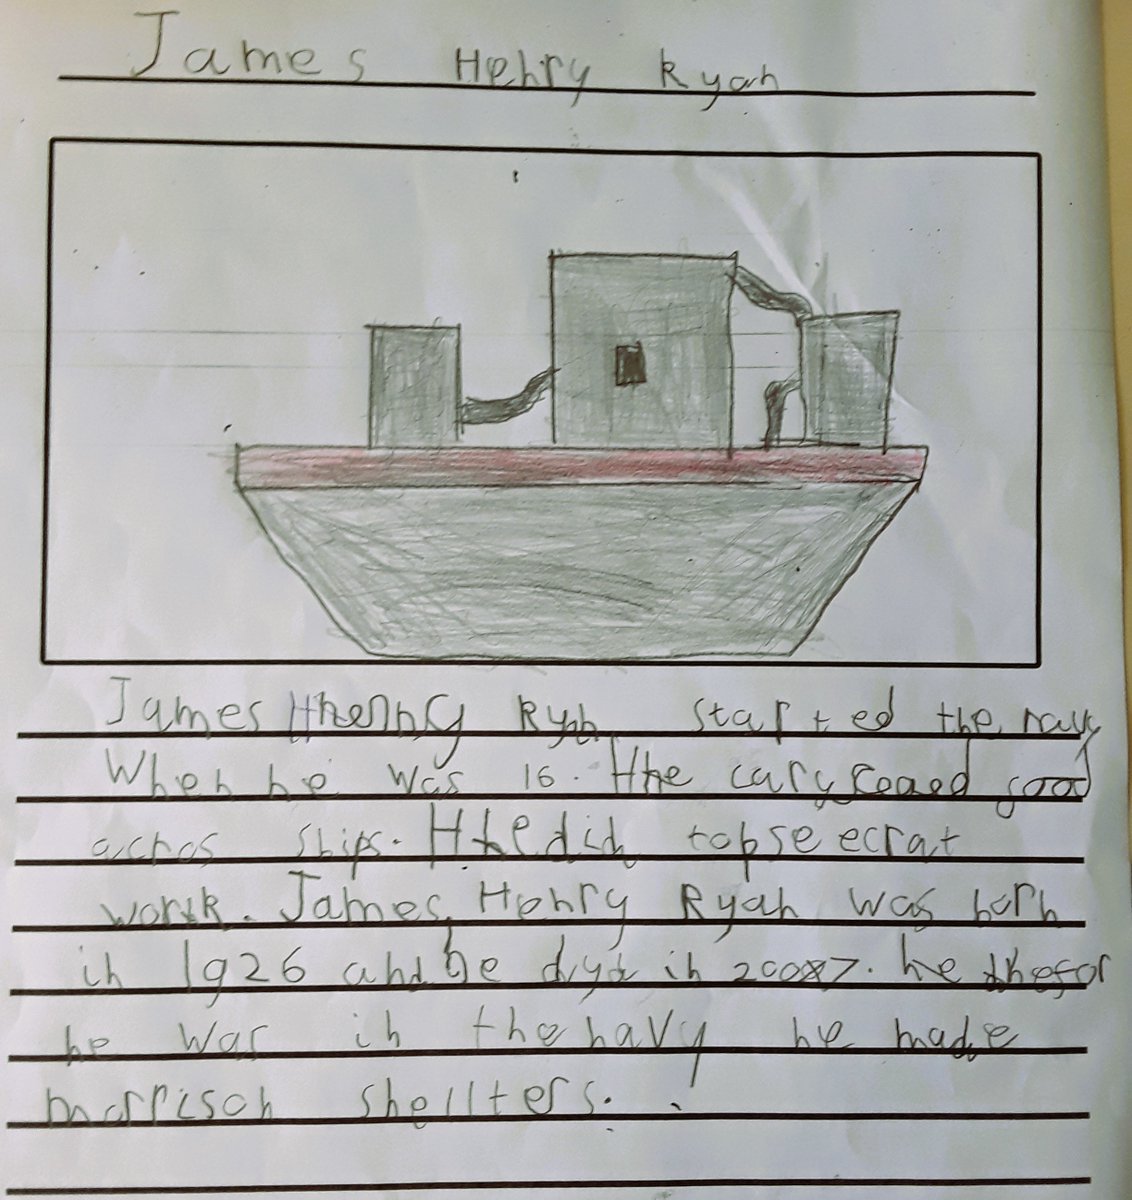 James Henry Ryan
James Hhenry Ryan started the navy
When he was 16. Hhe cary good
acros ships. Hhe did topseecrat
work. James Henry Ryan was born
in 1926 and he dyd in 2007. he
he was in the navy he made
morrison shellters.